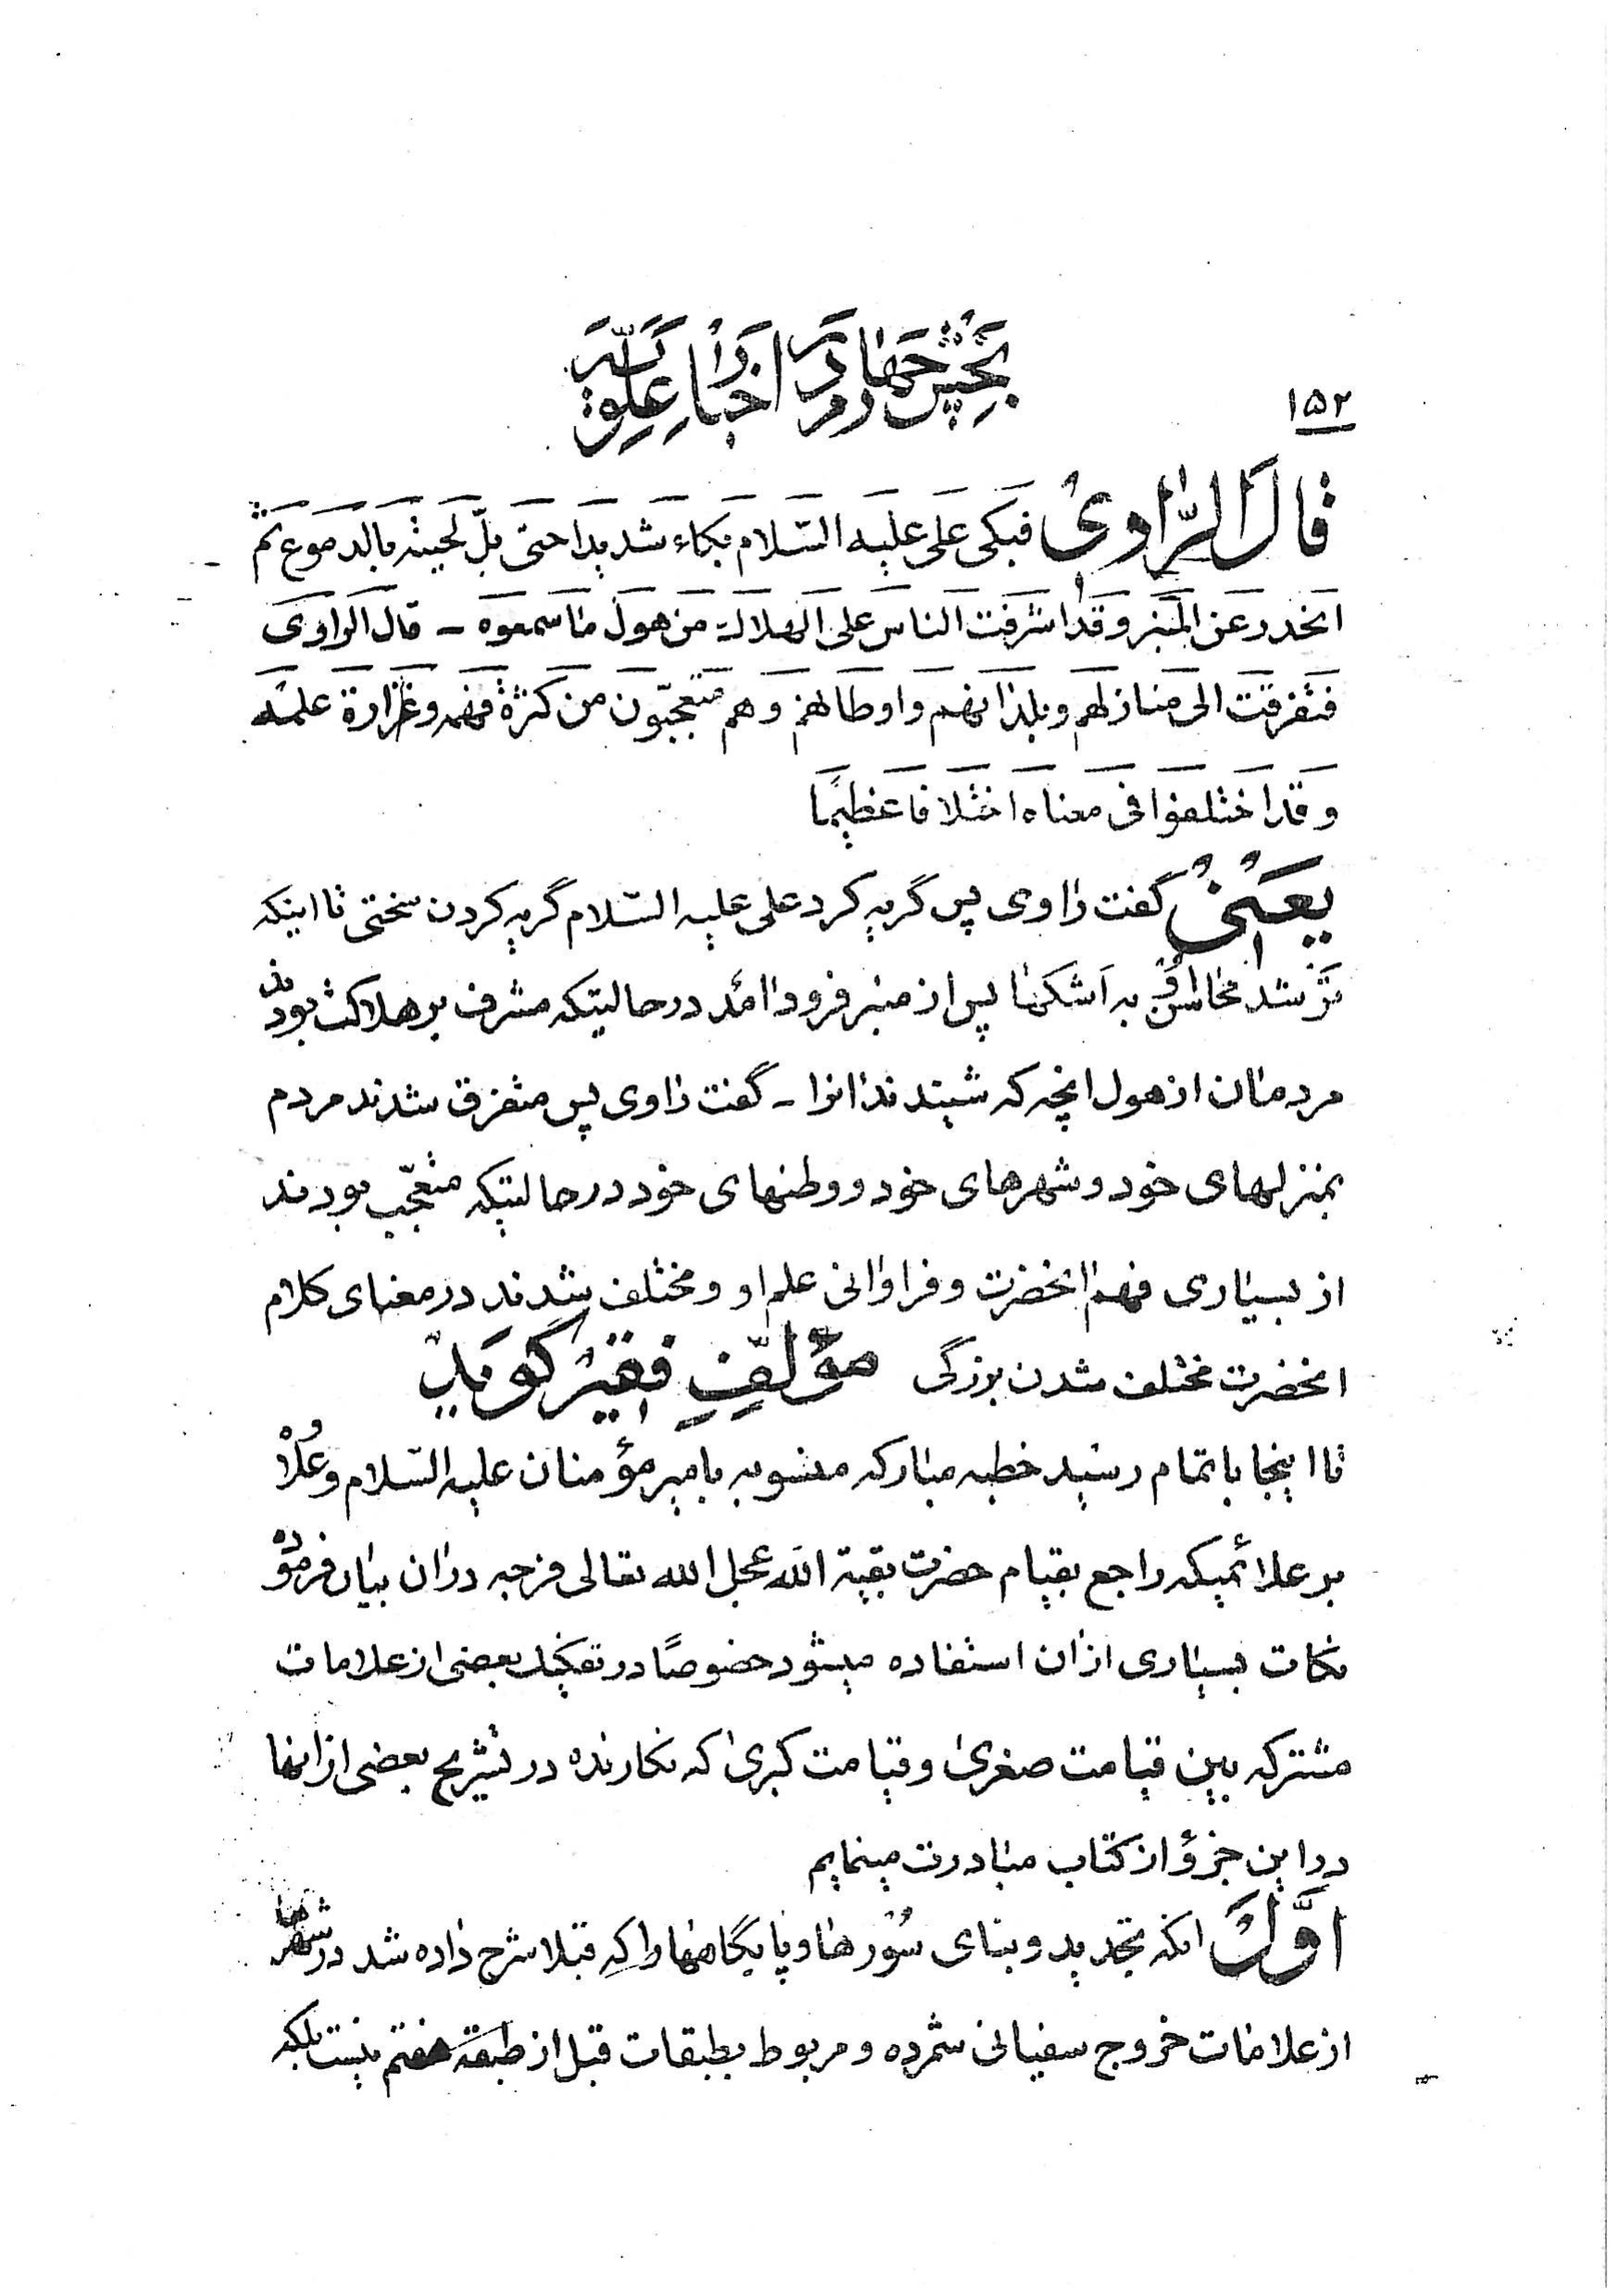 ۱۵۲
بخش چهارم در اخبار علویّه
قال الرّاوی فبکی علی علیه السّلام بکاء شدیدا حتی بلّ لحیته بالدموع ثم
انحدر عن المنبر و قد اشرفت الناس علی الهلاک من هول ما سمعوه ـ قال الراوی
فتفرقت الی منازلهم و بلدانهم و اوطانهم و هم متعجّبون من کثرة فهمه و غزارة علمه
و قد اختلفوا فی معناه اختلافا عظیما
یعنی گفت راوی پس گریه کرد علی علیه السّلام گریه کردن سختی تا اینکه
تر شد محاسن او به اشکها پس از منبر فرود امد در حالیتکه مشرف بر هلاکت بودند
مردمان از هول انچه که شنیدند انرا ـ گفت راوی پس متفرق شدند مردم
بمنزلهای خود و شهرهای خود و وطنهای خود در حالیتکه متعجّب بودند
از بسیاری فهم انحضرت و فراوانی علم او و مختلف شدند در معنای کلام
انحضرت مختلف شدن بزرگی مؤلّف فقیر گوید
تا اینجا باتمام رسید خطبه مبارکه منسوبه بامیر مؤمنان علیه السّلام و علاوه
بر علائمیکه راجع بقیام حضرت بقیة الله عجل الله تعالی فرجه در ان بیان فرموده
نکات بسیاری از ان استفاده میشود خصوصًا در تفکیک بعضی از علامات
مشترکه بین قیامت صغری و قیامت کبری که نگارنده در تشریح بعضی از انها
در این جزؤ از کتاب مبادرت مینمایم
اوّل انکه تجدید و بنای سورها و پایگاهها را که قبلا شرح داده شد در شهرها
از علامات خروج سفیانی شمرده و مربوط بطبقات قبل از طبقه هفتم نیست بلکه